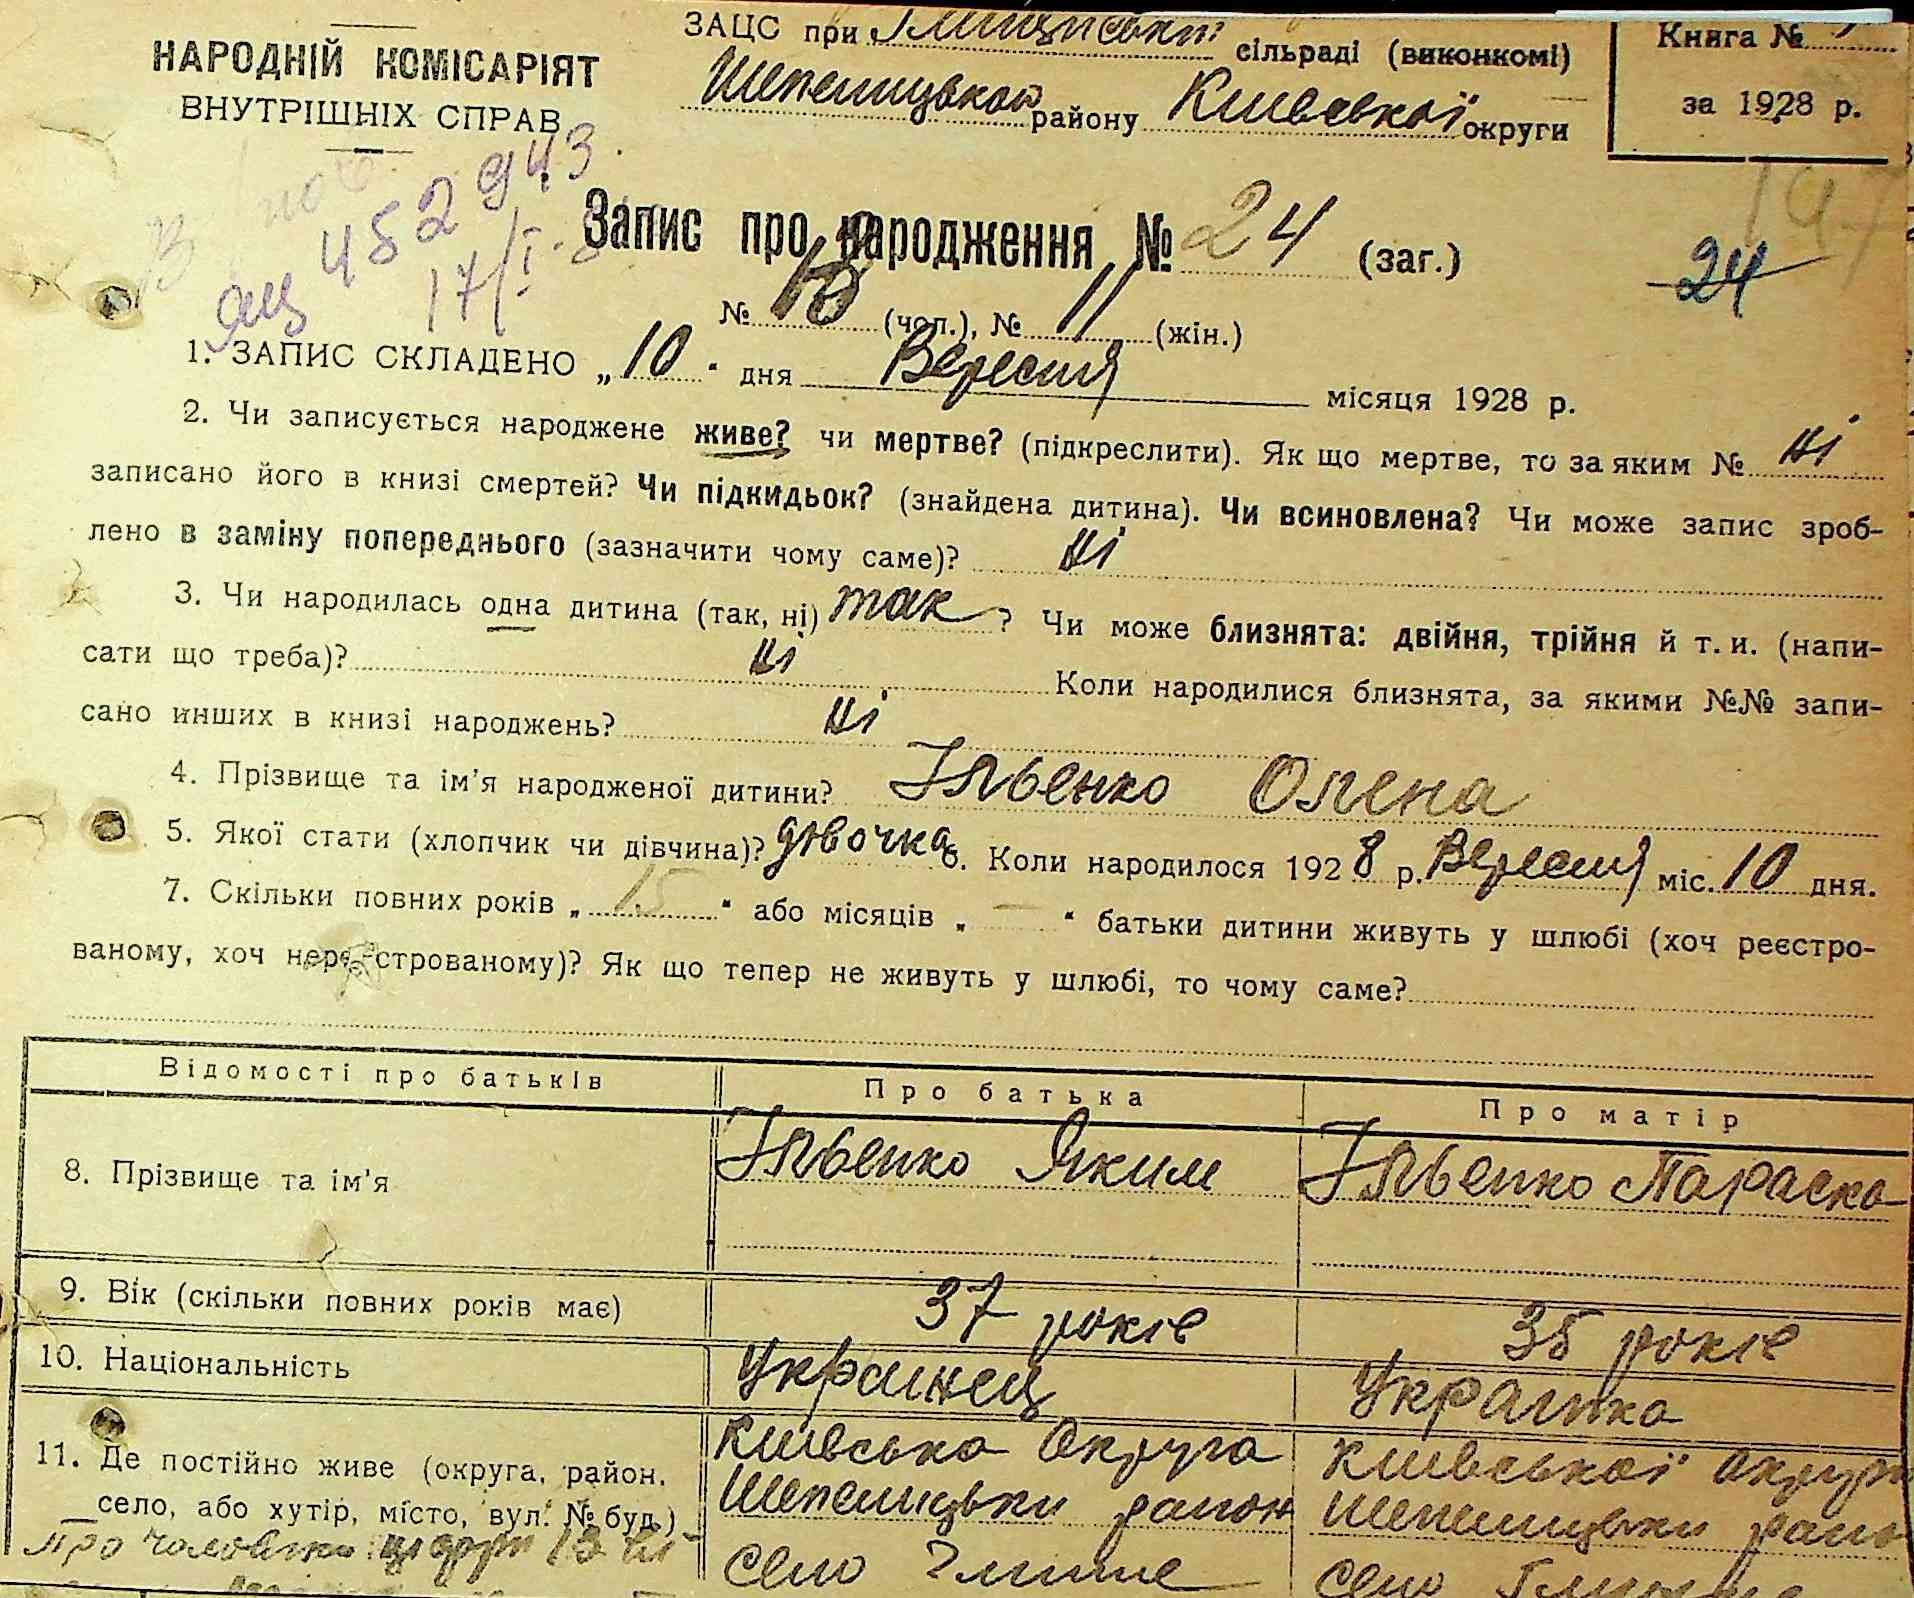 НАРОДНІЙ КОМІСАРІЯТ
ВНУТРІШНІХ СПРАВ
ЗАЦС при сільраді (виконкомі)
району Київської округи
Книга №
за 1928 р.
452943
17/I
Запис про народження № 24 (заг.)
24
№ 13 (чол.), № 11 (жін.)
1. ЗАПИС СКЛАДЕНО „10" дня Вересня місяця 1928 р.
2. Чи записується народжене живе? чи мертве? (підкреслити). Як що мертве, то за яким № ні
записано його в книзі смертей? Чи підкидьок? (знайдена дитина). Чи всиновлена? Чи може запис зроб-
лено в заміну попереднього (зазначити чому саме)? ні
3. Чи народилась одна дитина (так, ні) так ? Чи може близнята: двійня, трійня й т. и. (напи-
сати що треба)? ні Коли народилися близнята, за якими №№ запи-
сано инших в книзі народжень? ні
4. Прізвище та ім'я народженої дитини? Ільєнко Олена
5. Якої стати (хлопчик чи дівчина)? дівочка 6. Коли народилося 1928 р. Вересня міс. 10 дня.
7. Скільки повних років „ 15 " або місяців „ — " батьки дитини живуть у шлюбі (хоч реєстро-
ваному, хоч нереєстрованому)? Як що тепер не живуть у шлюбі, то чому саме?
Відомості про батьків Про батька Про матір
8. Прізвище та ім'я Ільєнко Яким Ільєнко Параска
9. Вік (скільки повних років має) 37 років 35 років
10. Національність Украинец Украінка
11. Де постійно живе (округа, район, Київська округа Київської округи
село, або хутір, місто, вул. № буд.) район
село село